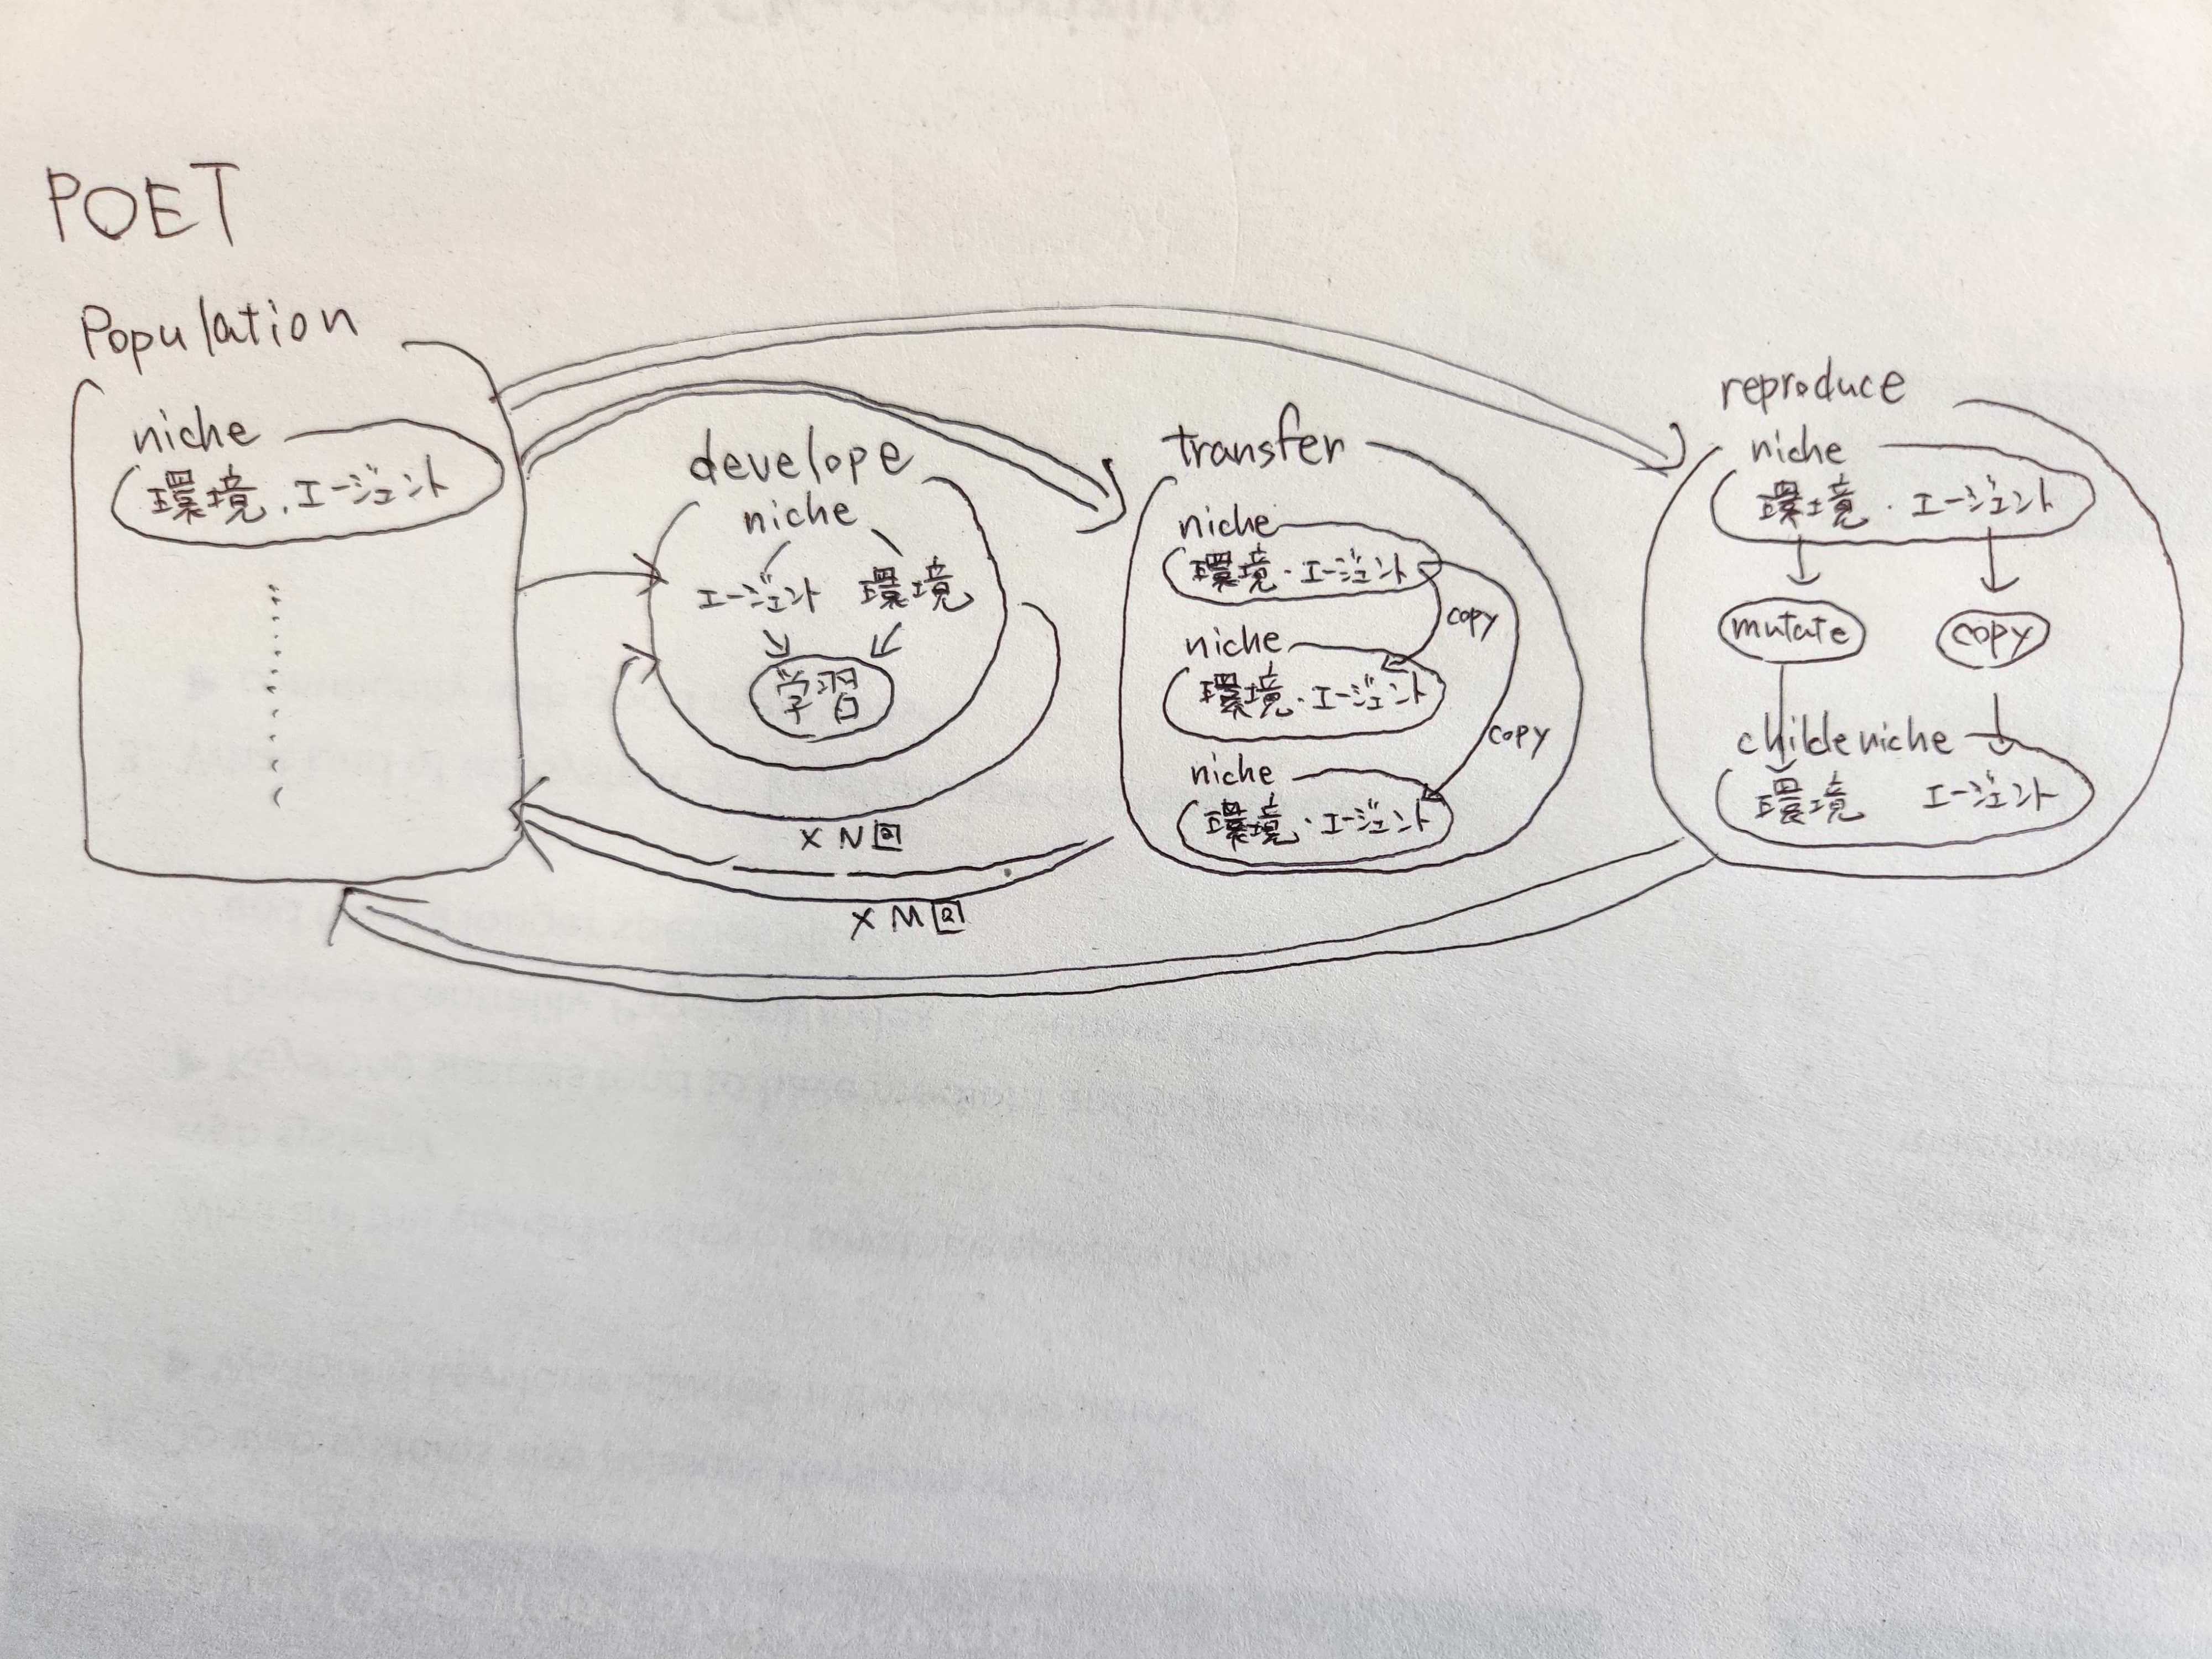 POET
Population
niche
環境.エージェント
develope
niche
エージェント 環境
学習
× N回
× M回
transfer
niche
環境・エージェント
copy
niche
環境・エージェント
copy
niche
環境・エージェント
reproduce
niche
環境・エージェント
mutate copy
childe niche
環境 エージェント